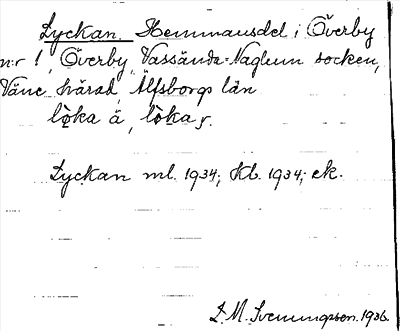 Lyckan. Hemmansdel i Överby
n:r 1, Överby, Vassända-Naglum socken,
Väne härad, Älfsborgs län
lo̊ka å, lo̊kar.
Lyckan ml. 1934; Kb. 1934; ek.
D. M. Svenungsson. 1936.